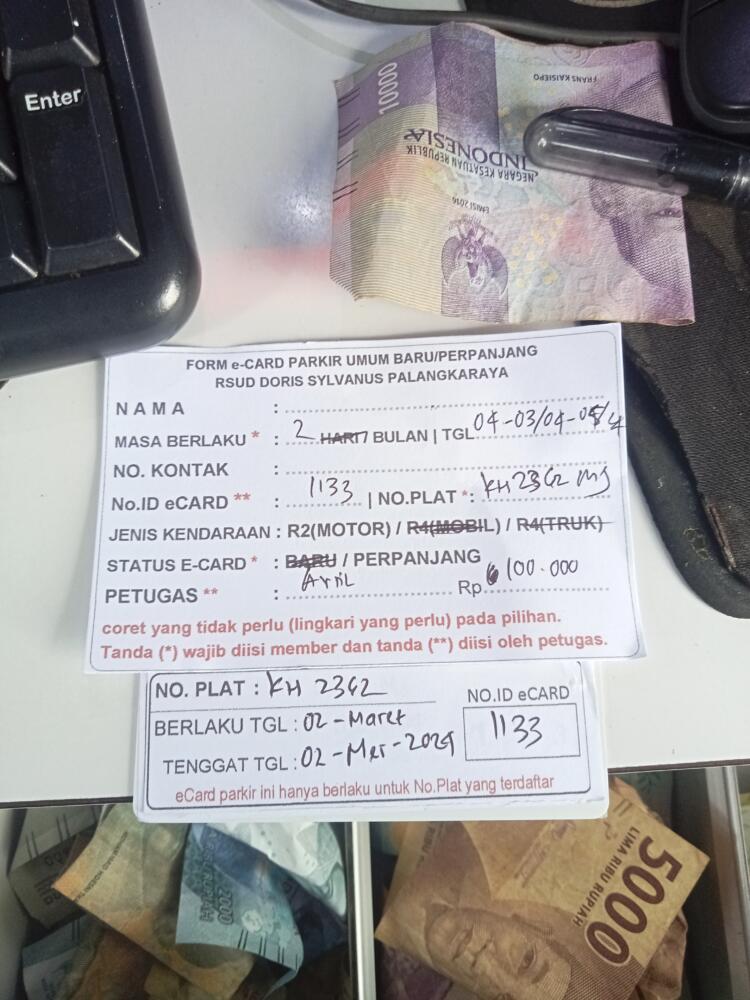 Enter
10000
FRANS KAISIEPO
NEGARA KESATUAN REPUBLIK
INDONESIA
EMISI 2016
FORM e-CARD PARKIR UMUM BARU/PERPANJANG
RSUD DORIS SYLVANUS PALANGKARAYA
NAMA :
MASA BERLAKU * : 2 HARI / BULAN | TGL 04-03/04-05/4
NO. KONTAK :
No.ID eCARD ** : 1133 | NO.PLAT *: KH 2362 MJ
JENIS KENDARAAN : R2(MOTOR) / R4(MOBIL) / R4(TRUK)
STATUS E-CARD * : BARU / PERPANJANG
PETUGAS ** : April Rp 100.000
coret yang tidak perlu (lingkari yang perlu) pada pilihan.
Tanda (*) wajib diisi member dan tanda (**) diisi oleh petugas.
NO. PLAT : KH 2362
NO.ID eCARD
BERLAKU TGL : 02-Maret
1133
TENGGAT TGL : 02-Mei-2024
eCard parkir ini hanya berlaku untuk No.Plat yang terdaftar
2000
5000
LIMA RIBU RUPIAH